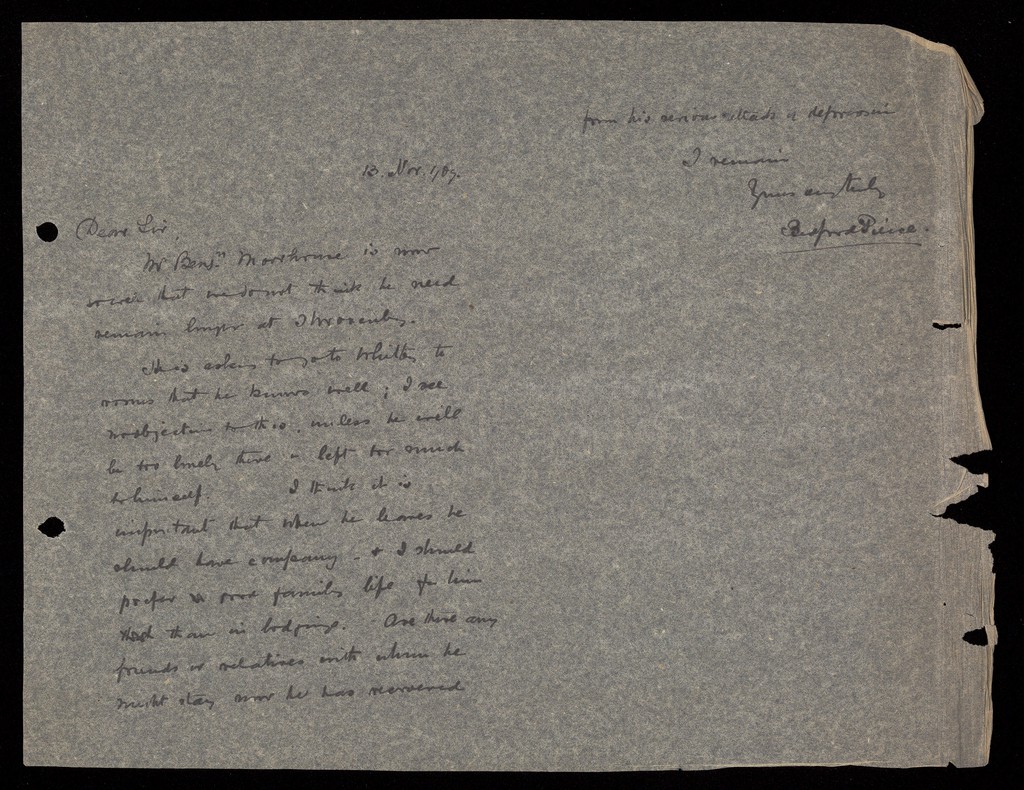 13. Nov. 1909.
Dear Sir,
Mr Benjn Moorhouse is now
so well that we do not think he need
remain longer at
He is asking to go to Whitby to
rooms that he knows well; I see
no objection to this, unless he will
be too lonely there & left too much
to himself. I think it is
important that when he leaves he
should have company - & I should
prefer a good family life for him
than in lodgings. Are there any
friends or relatives with whom he
might stay now he has recovered
from his serious attack of depression
I remain
Yours very truly
Bedford Pierce.